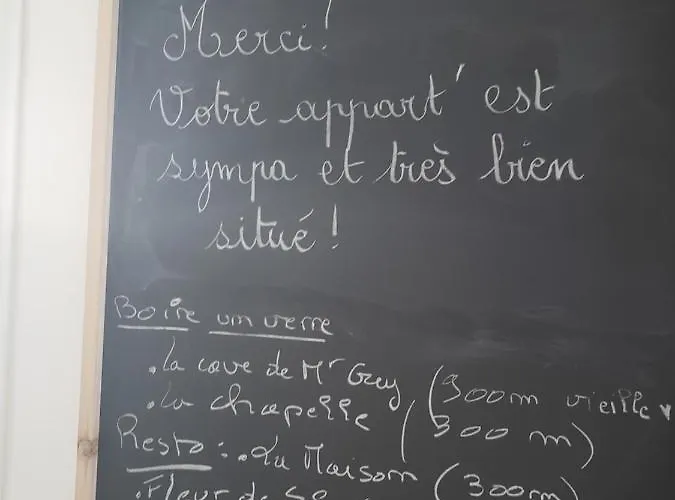 Merci!
Votre appart' est
sympa et très bien
situé !
Boire um verre
. La cave de Mr Grey (300m vieille
. La chapelle (300 m)
Resto : . La Maison (300m)
. Fleur de Se